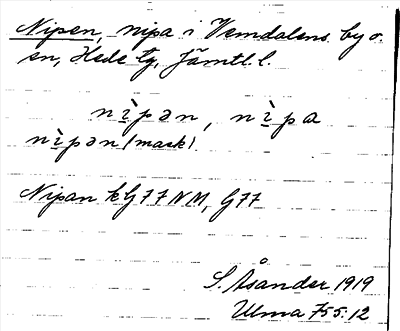 Nipen, nipa i Vemdalens by o.
en, Hede tg, Jämtl. l.
nìpən, nìpa
nìpən (mask)
Nipan k G 77 NM, G 77
S. Åsander 1919
Ulma 755:12